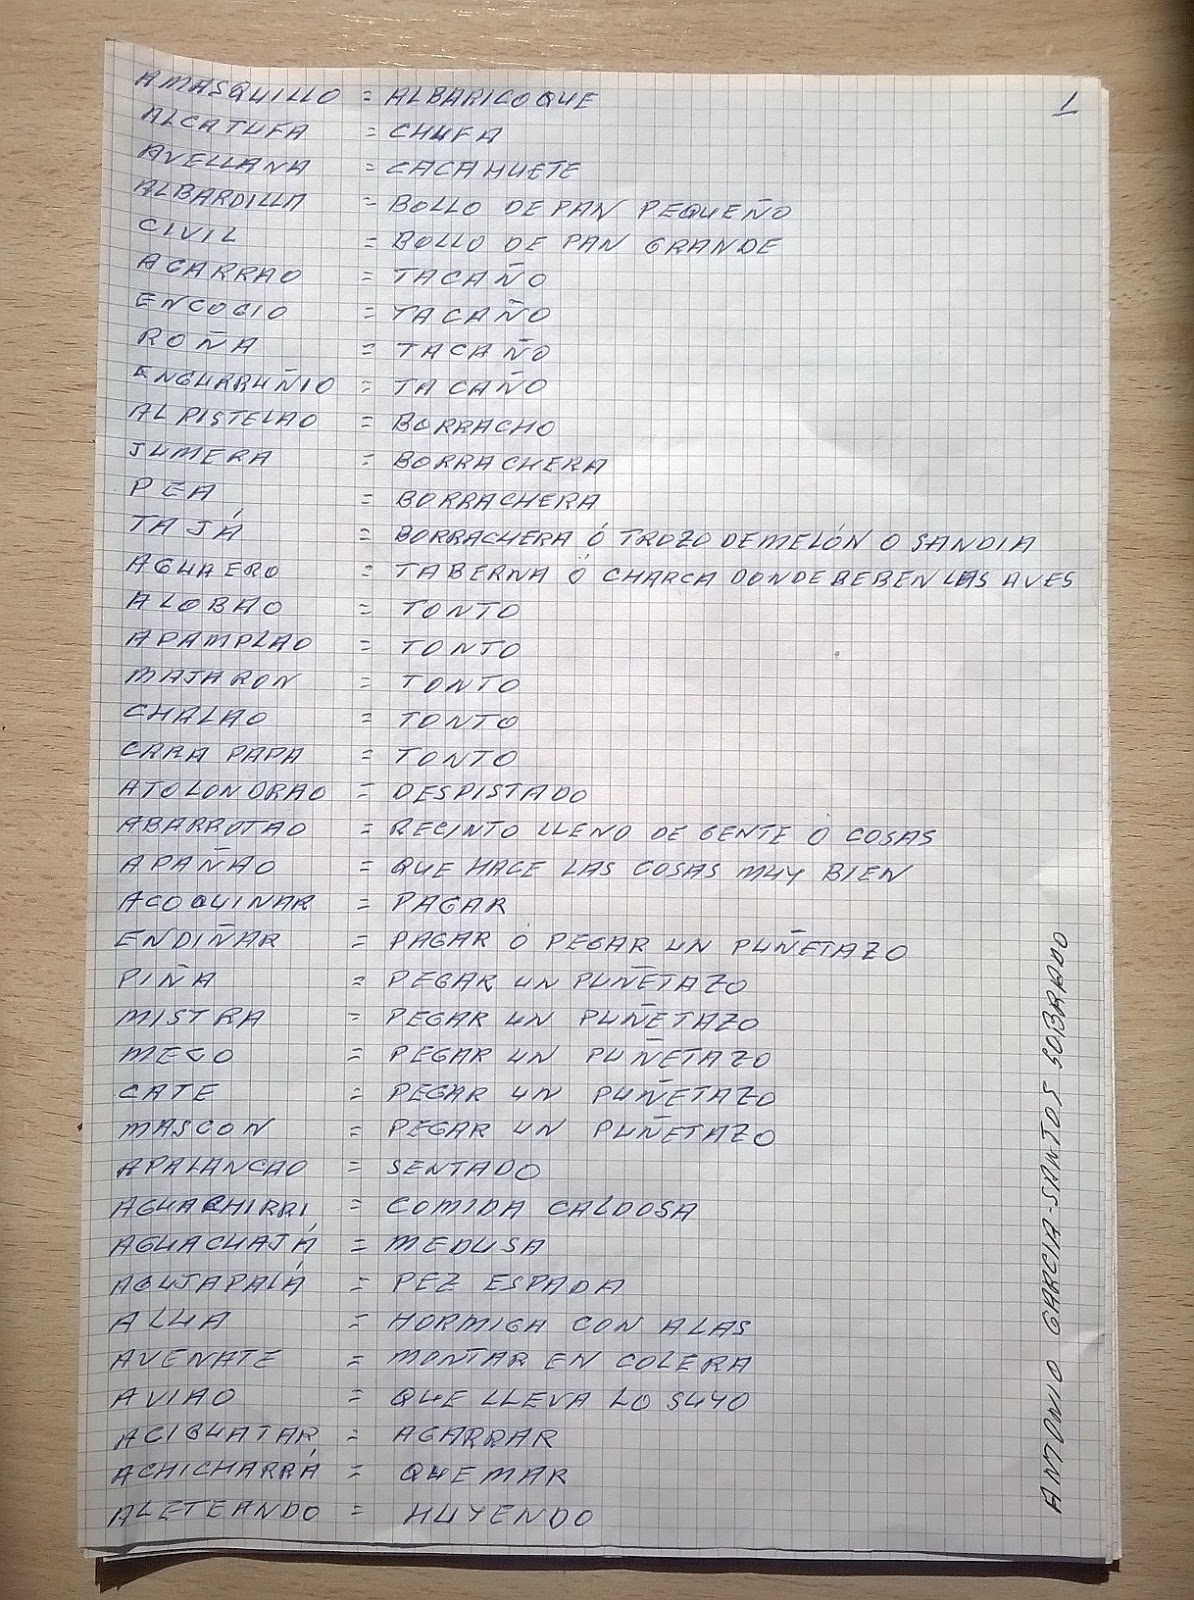 1
AMASQUILLO = ALBARICOQUE
ALCATUFA = CHUFA
AVELLANA = CACAHUETE
ALBARDILLA = BOLLO DE PAN PEQUEÑO
CIVIL = BOLLO DE PAN GRANDE
ACARRAO = TACAÑO
ENCOGIO = TACAÑO
ROÑA = TACAÑO
ENGURRUÑIO = TACAÑO
ALPISTELAO = BORRACHO
JUMERA = BORRACHERA
PEA = BORRACHERA
TAJÁ = BORRACHERA Ó TROZO DE MELÓN O SANDIA
AGUAERO = TABERNA Ó CHARCA DONDE BEBEN LAS AVES
ALOBAO = TONTO
APAMPLAO = TONTO
MAJARON = TONTO
CHALAO = TONTO
CARA PAPA = TONTO
ATOLONDRAO = DESPISTADO
ABARROTAO = RECINTO LLENO DE GENTE O COSAS
APAÑAO = QUE HACE LAS COSAS MUY BIEN
ACOQUINAR = PAGAR
ENDIÑAR = PAGAR O PEGAR UN PUÑETAZO
PIÑA = PEGAR UN PUÑETAZO
MISTRA = PEGAR UN PUÑETAZO
MECO = PEGAR UN PUÑETAZO
CATE = PEGAR UN PUÑETAZO
MASCON = PEGAR UN PUÑETAZO
APALANCAO = SENTADO
AGUACHIRRI = COMIDA CALDOSA
AGUACUAJÁ = MEDUSA
AGUJAPALÁ = PEZ ESPADA
ALUA = HORMIGA CON ALAS
AVENATE = MONTAR EN COLERA
AVIAO = QUE LLEVA LO SUYO
ACIGUATAR = AGARRAR
ACHICHARRÁ = QUEMAR
ALETEANDO = HUYENDO
ANTONIO GARCIA-SANTOS SOBRADO